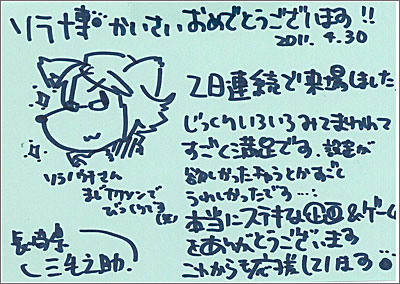 ソラ博かいさいおめでとうございます!!
2011.4.30
2日連続で来場しました
じっくりいろいろみてまわれて
すごく満足です。設定が
欲しかったキャラとかすごく
うれしかったです…!
本当にステキな企画&ゲーム
をありがとうございます
これからも応援しています
ソラパチさん
まじイケメンで
びっくりです
長崎県
三毛之助.